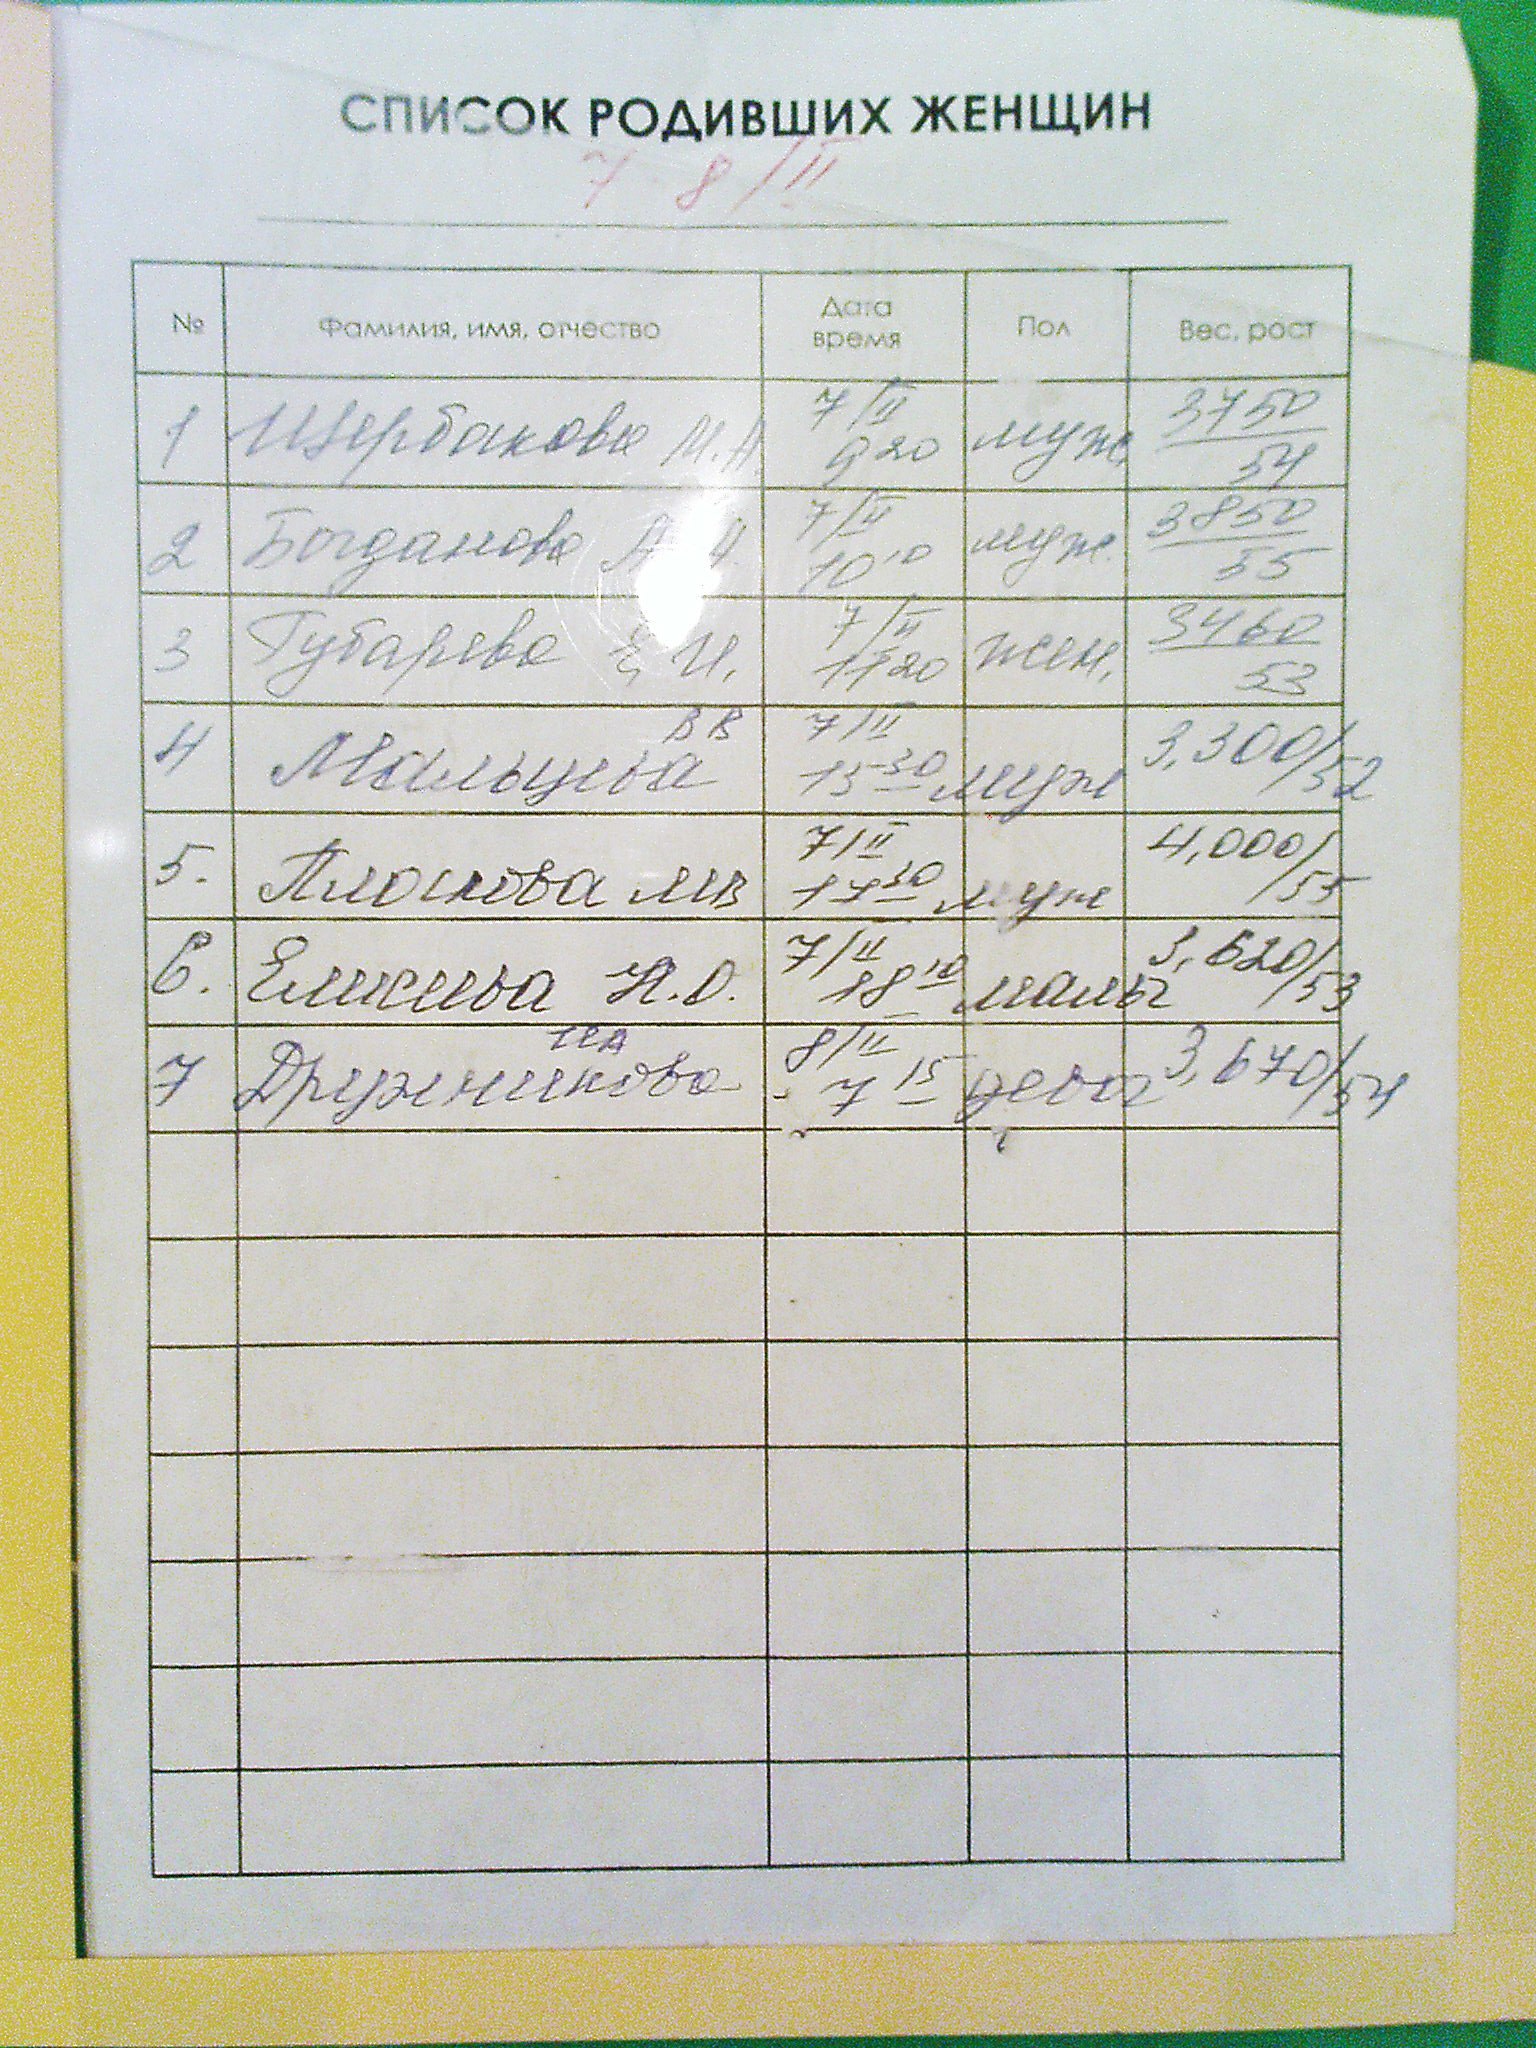 СПИСОК РОДИВШИХ ЖЕНЩИН
7 8/II
№ Фамилия, имя, отчество Дата время Пол Вес, рост
1 Щербакова М.А. 7/II 9 20 муж. 3750 54
2 Богданова А 7/II 10 10 муж. 3850 55
3 Губарева Е И. 7/II 11 20 жен. 3460 53
4 Мальцева ВВ 7/II 15 30 муж 3,300/52
5. Плоскова МВ 7/II 17 30 муж 4,000/55
6. Н.О. 7/II 18 10 мальч 3,620/53
7 Дружникова 8/II 7 15 девоч 3,670/54